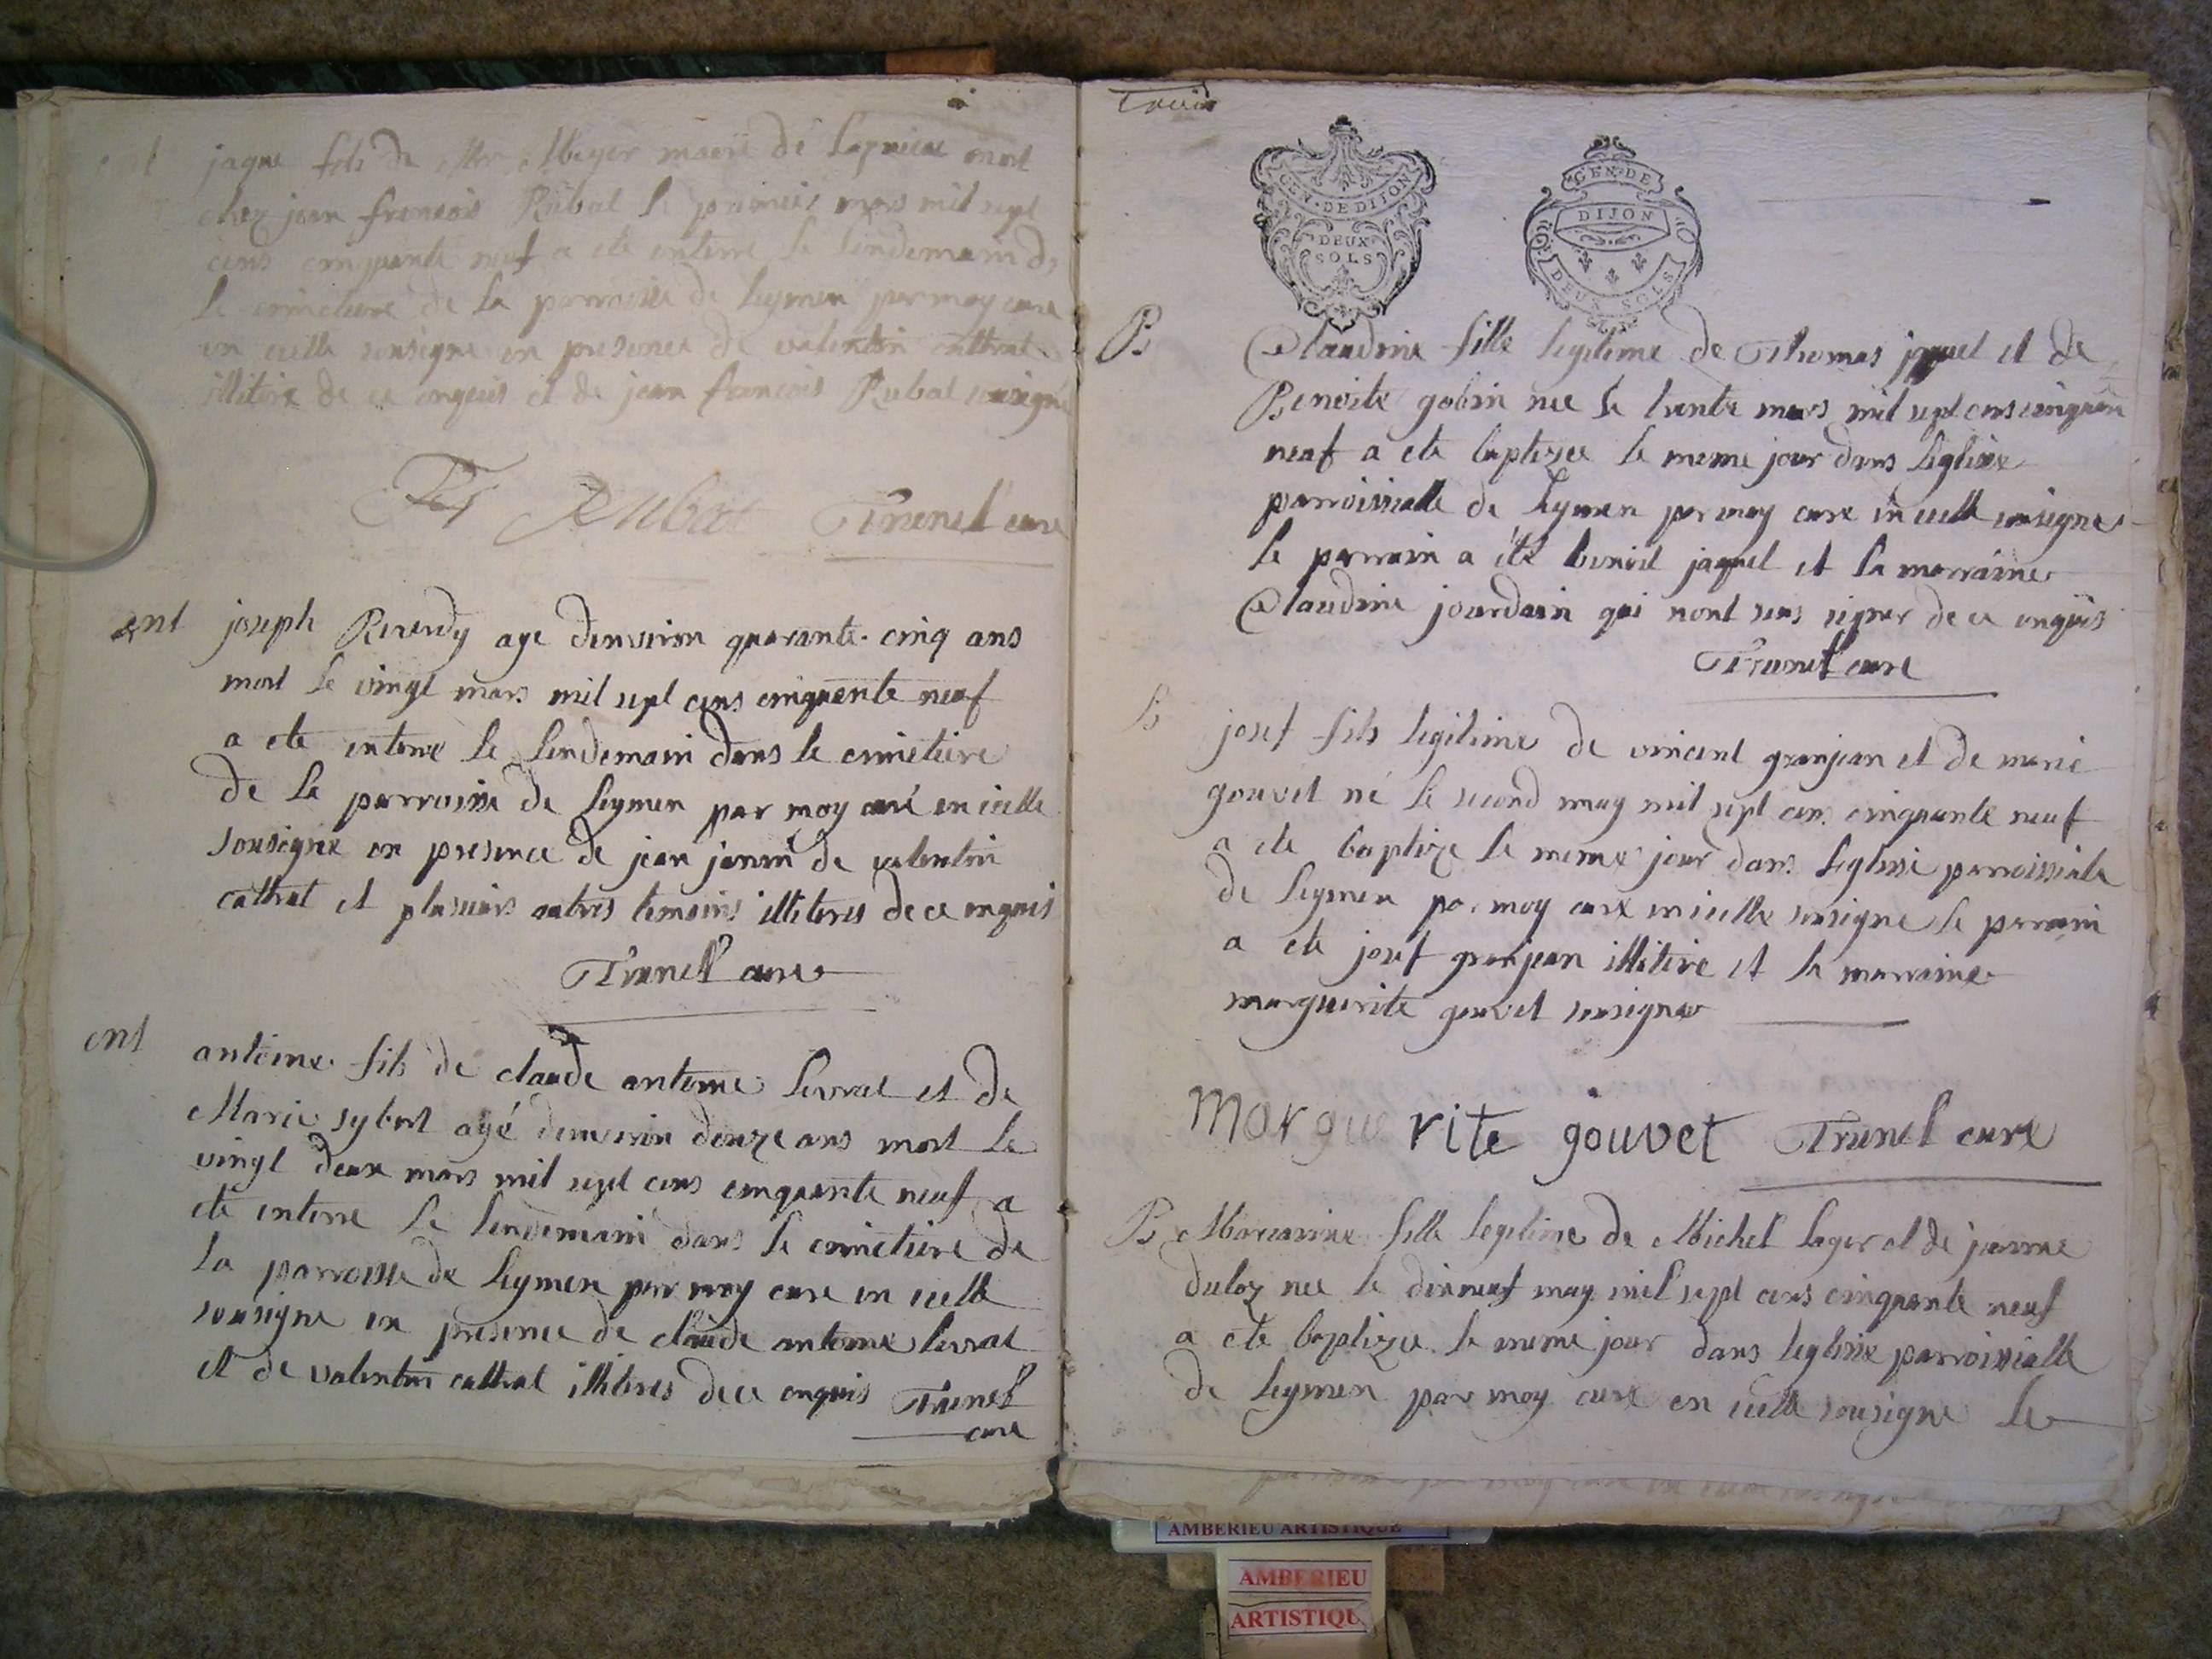 ent jaque fils de Mr Meyer de mort
chez jean francois Rubat le premier mars mil sept
cens cinquante neuf a ete enterre le lendemain ds
le cimetiere de la parroisse de leymen par moy cure
en icelle sousigne en presence de valentin cathrat
illitire de ce enquis et de jean francois Rubat sousigné
Rubat Trunel cure
ent joseph Reverdy age denviron quarante cinq ans
mort le vingt mars mil sept cens cinquante neuf
a ete enterre le lendemain dans le cimetiere
de la parroisse de leymen par moy curé en icelle
sousigne en presence de jean janin de valentin
cathrat et plusieurs autres temoins illiteres de ce enquis
Trunel cure
ent antoine fils de claude antoine livrat et de
Marie sybert agé denviron douze ans mort le
vingt deux mars mil sept cens cinquante neuf a
ete enterre le lendemain dans le cimetiere de
la parroisse de leymen par moy cure en icelle
sousigne en presence de claude antoine livrat
et de valentin cathrat illiteres de ce enquis Trunel
cure
trois
GEN. DE DIJON
DEUX
SOLS
GEN. DE
DIJON
DEUX SOLS
B Claudine fille legitime de Thomas jaquet et de
Benoite gobin nee le trente mars mil sept cens cinquante
neuf a ete baptizee le meme jour dans leglise
parroissialle de leymen par moy cure en icelle sousigne
le parrain a été benoit jaquet et la marraine
Claudine jourdain qui nont seus signer de ce enquis
Trunel cure
B josef fils legitime de vincent granjean et de marie
gouvet né le second may mil sept cens cinquante neuf
a ete baptize le meme jour dans leglise parroissiale
de leymen par moy cure en icelle sousigne le parrain
a ete josef granjean illitire et la marraine
marguerite gouvet sousigne
Marguerite gouvet Trunel cure
B Marianne fille legitime de Michel lager et de janne
duloz nee le dixneuf may mil sept cens cinquante neuf
a ete baptizee le meme jour dans leglise parroissialle
de leymen par moy cure en icelle sousigne le
AMBERIEU ARTISTIQUE
AMBERIEU
ARTISTIQU